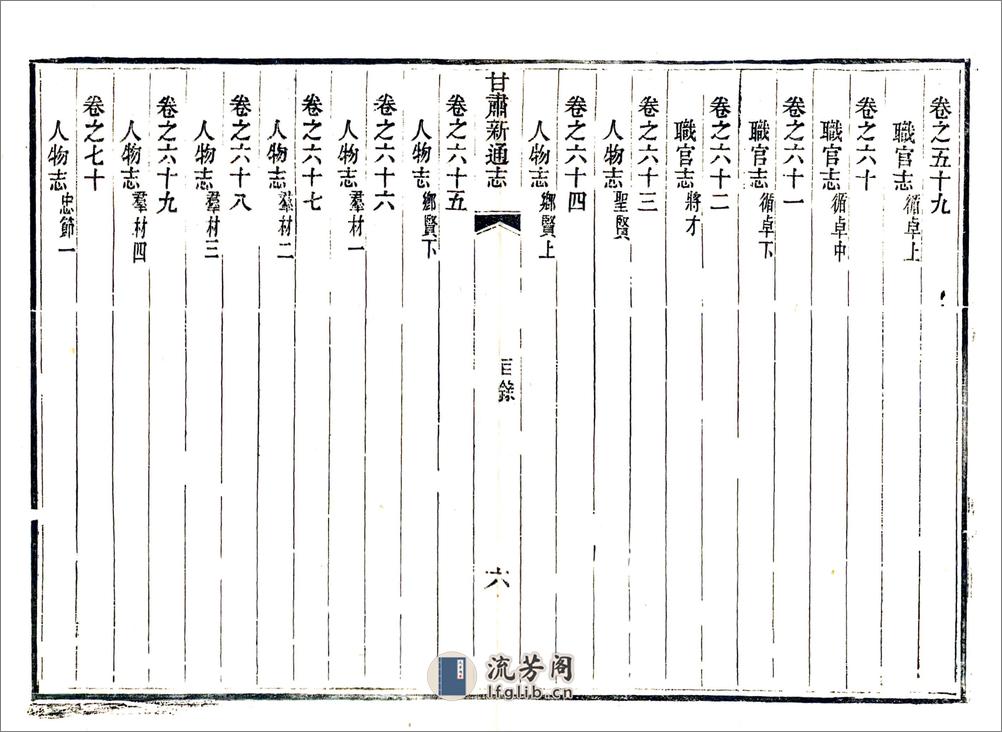 卷之五十九
職官志 循卓上
卷之六十
職官志 循卓中
卷之六十一
職官志 循卓下
卷之六十二
職官志 將才
卷之六十三
人物志 聖賢
卷之六十四
人物志 鄉賢上
甘肅新通志
目錄
六
卷之六十五
人物志 鄉賢下
卷之六十六
人物志 羣材一
卷之六十七
人物志 羣材二
卷之六十八
人物志 羣材三
卷之六十九
人物志 羣材四
卷之七十
人物志 忠節一
流芳阁
lfglib.cn